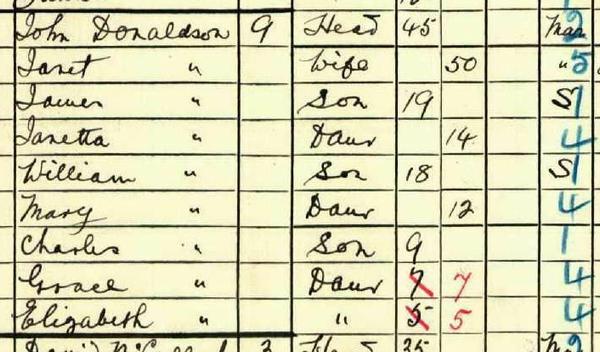 John Donaldson 9 Head 45 Mar 2
Janet " Wife 50 " 5
James " Son 19 S 1
Janetta " Daur 14 4
William " Son 18 S 1
Mary " Daur 12 4
Charles " Son 9 1
Grace " Daur 7 7 4
Elizabeth " " 5 5 4
David 3 Head 35 2